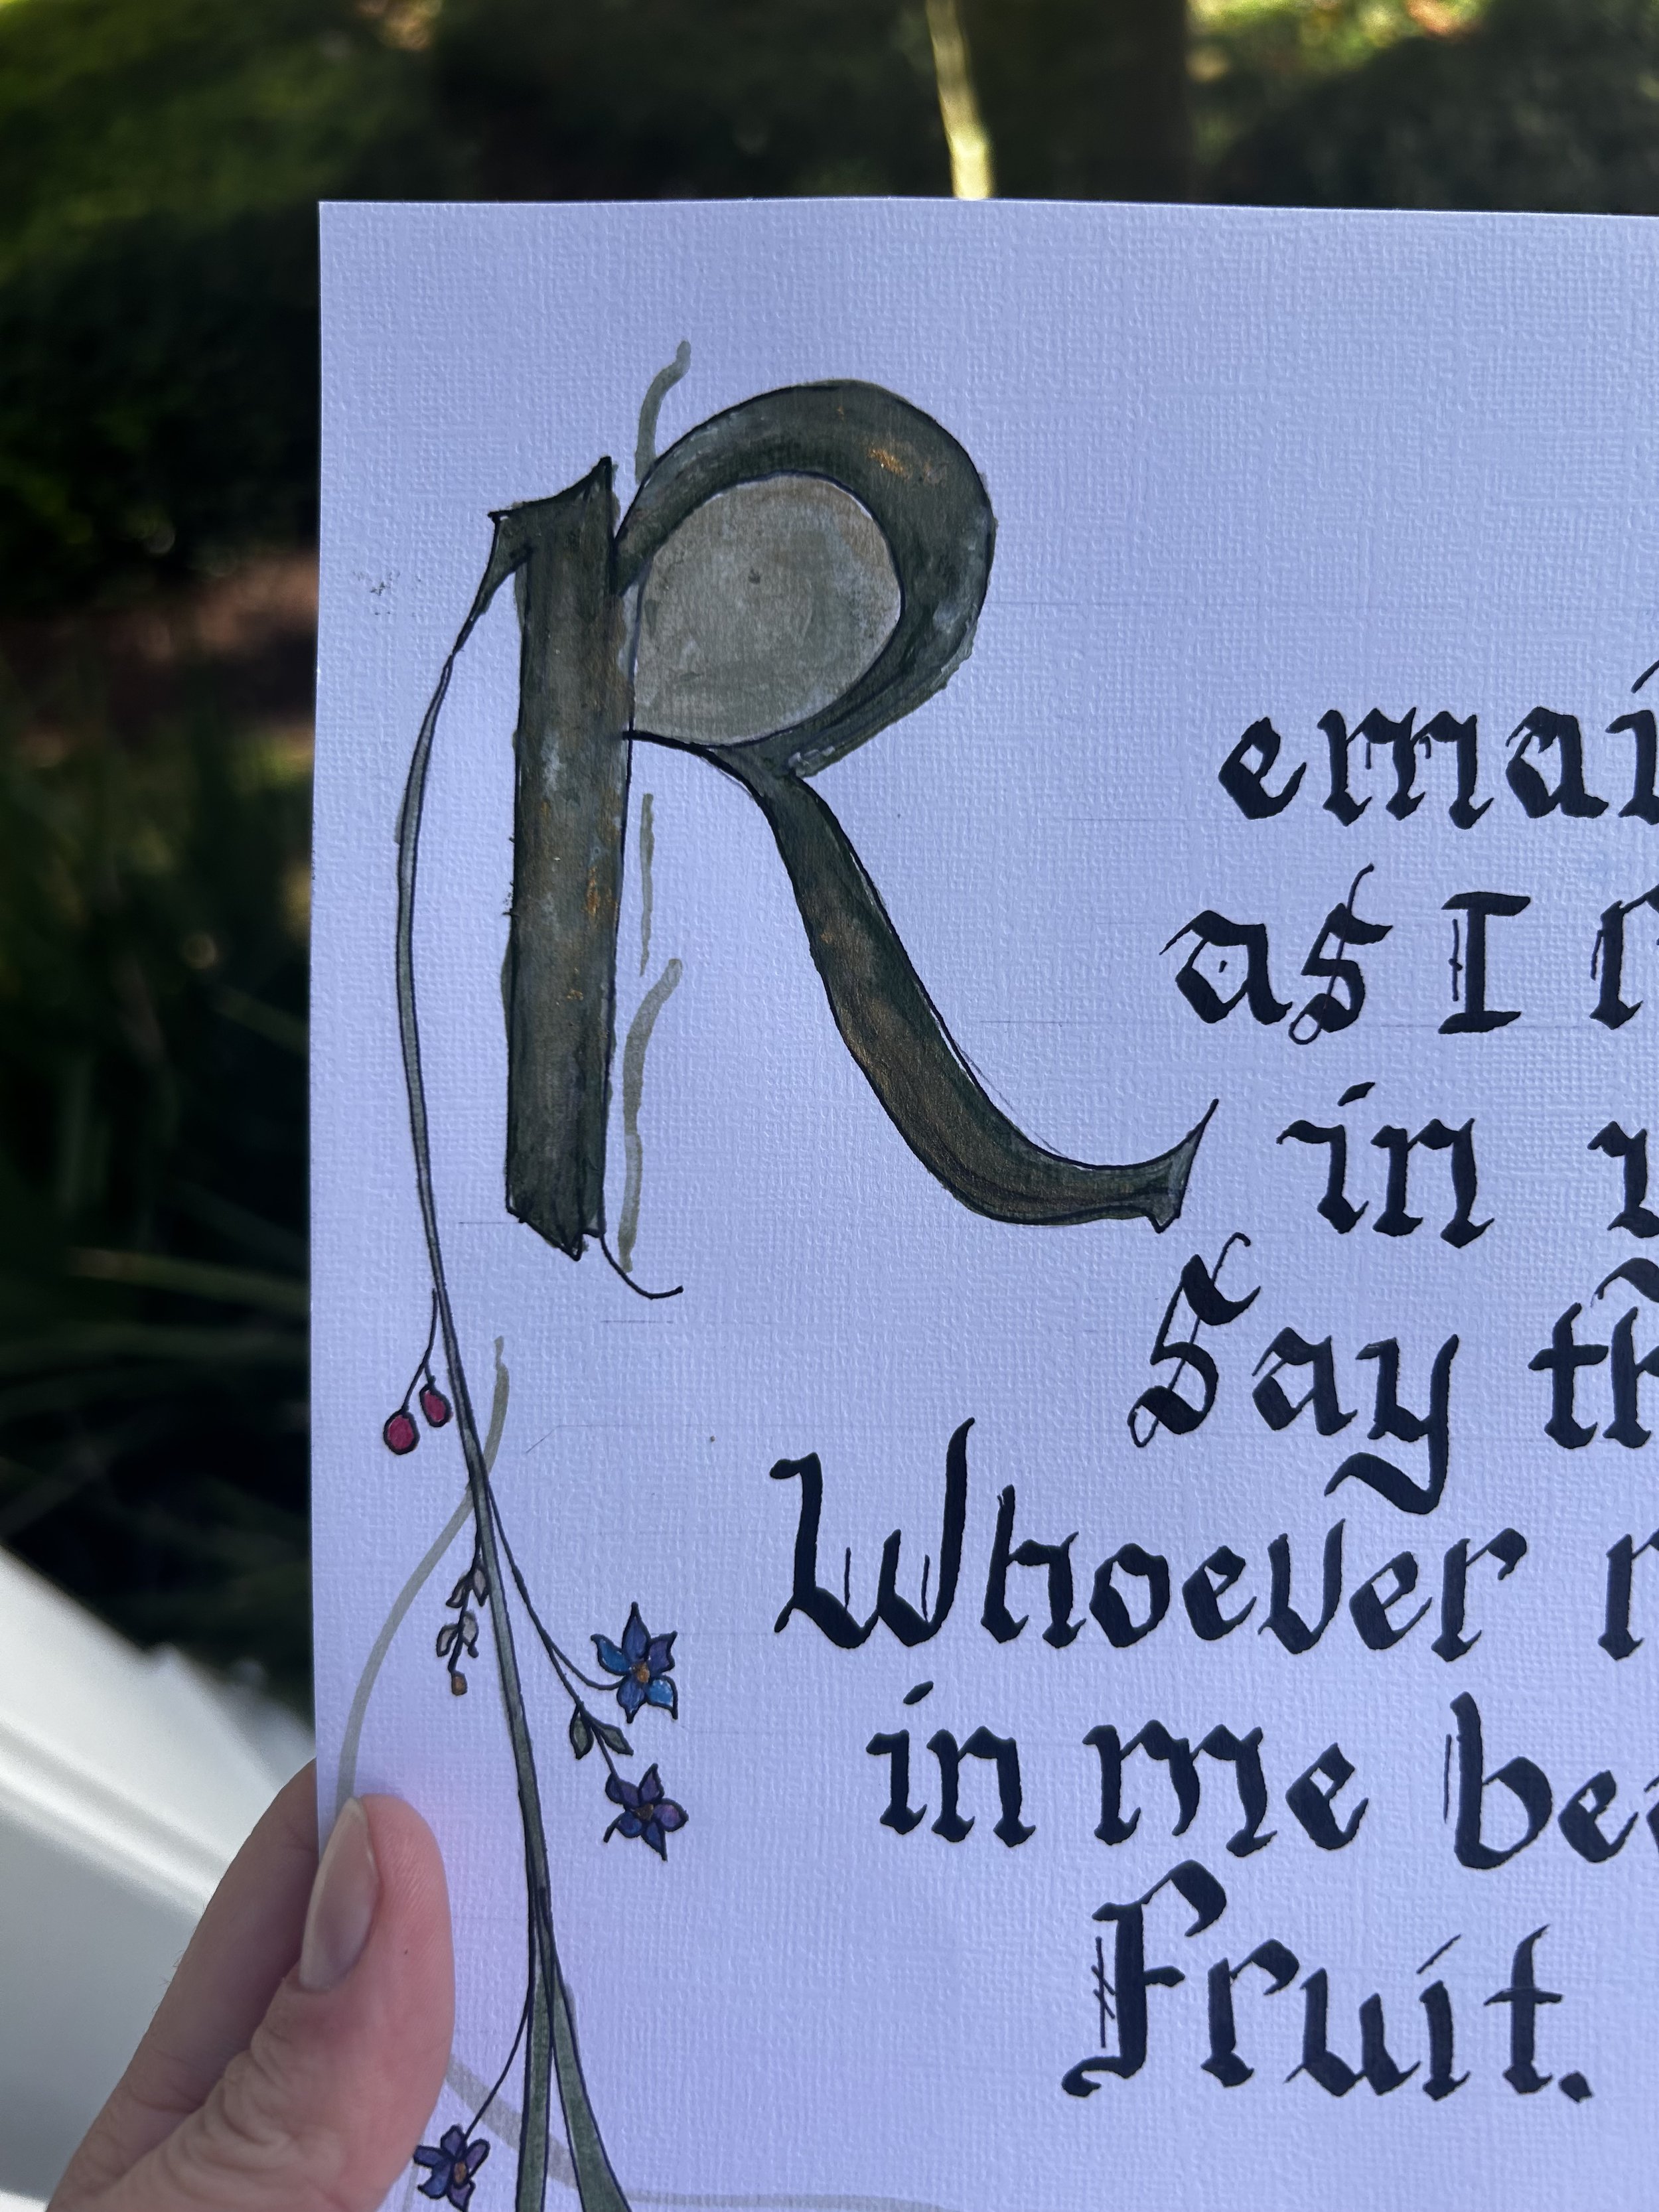 Remai
as I
in
Say th
Whoever
in me bea
Fruit.